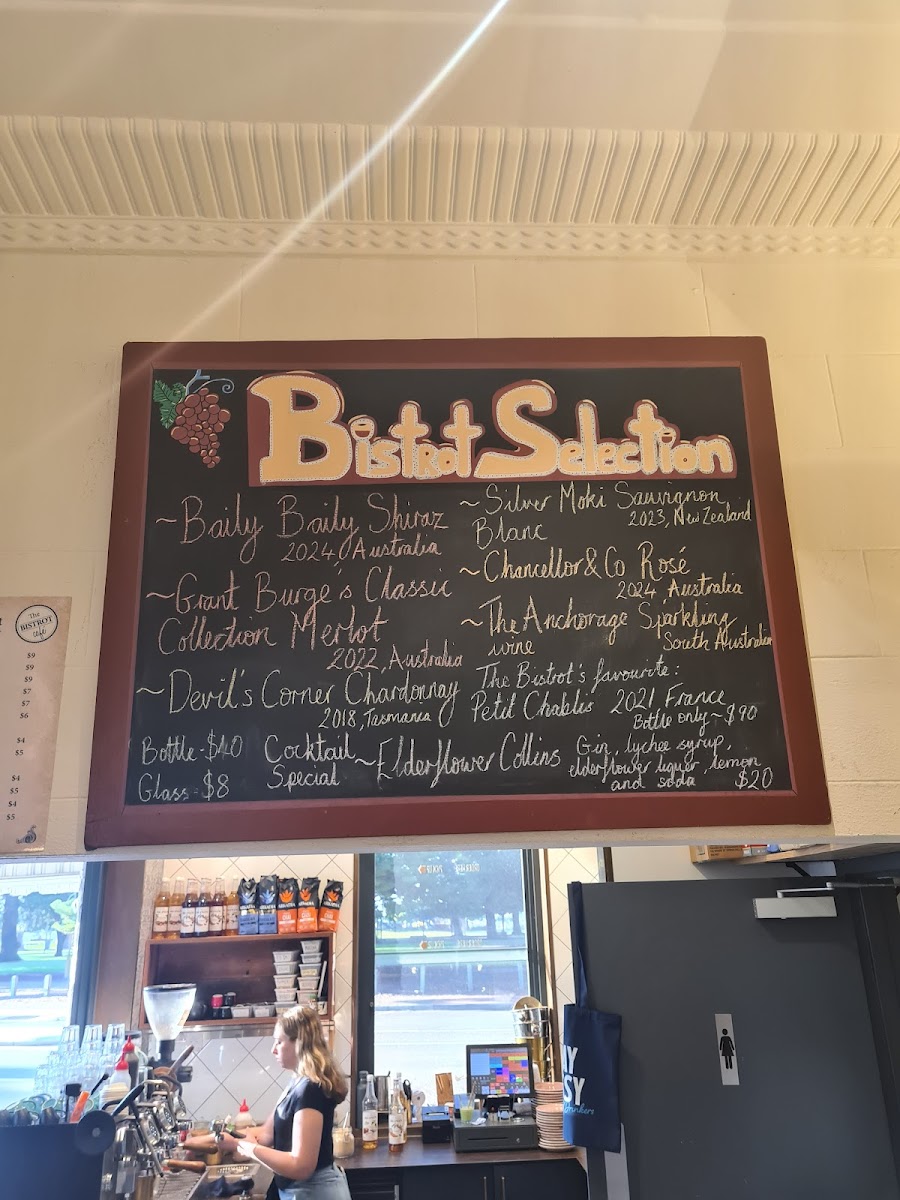 Bistrot Selection
~Baily Baily Shiraz
2024, Australia
~Grant Burge's Classic
Collection Merlot
2022, Australia
~Devil's Corner Chardonnay
2018, Tasmania
Bottle - $40
Glass - $8
~Silver Moki Sauvignon
Blanc
2023, New Zealand
~Chancellor & Co Rosé
2024, Australia
~The Anchorage Sparkling
wine
South Australia
The Bistrot's favourite:
Petit Chablis 2021, France
Bottle only ~ $90
Cocktail
Special
~Elderflower Collins
Gin, lychee syrup,
elderflower liquer, lemon
and soda
$20
The
BISTROT
Café
$9
$9
$9
$7
$7
$6
$4
$5
$4
$5
$4
$5